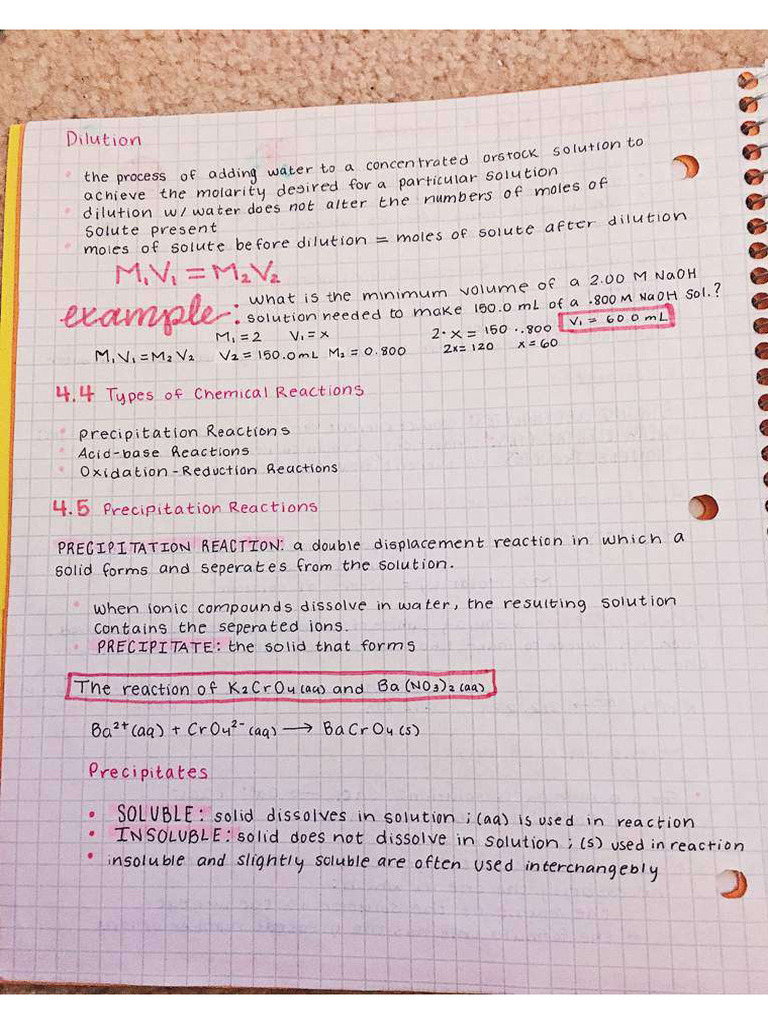 Dilution
the process of adding water to a concentrated or stock solution to
achieve the molarity desired for a particular solution
dilution w/ water does not alter the numbers of moles of
solute present
moles of solute before dilution = moles of solute after dilution
M₁V₁ = M₂V₂
example: what is the minimum volume of a 2.00 M NaOH
solution needed to make 150.0 mL of a .800 M NaOH Sol.?
M₁ = 2 V₁ = x 2 · x = 150 · .800 V₁ = 60.0 mL
M₁V₁ = M₂V₂ V₂ = 150.0mL M₂ = 0.800 2x = 120 x = 60
4.4 Types of Chemical Reactions
Precipitation Reactions
Acid-base Reactions
Oxidation-Reduction Reactions
4.5 Precipitation Reactions
PRECIPITATION REACTION: a double displacement reaction in which a
solid forms and seperates from the solution.
when ionic compounds dissolve in water, the resulting solution
contains the seperated ions.
PRECIPITATE: the solid that forms
The reaction of K₂CrO₄ (aq) and Ba(NO₃)₂ (aq)
Ba²⁺ (aq) + CrO₄²⁻ (aq) → BaCrO₄ (s)
Precipitates
• SOLUBLE: solid dissolves in solution ; (aq) is used in reaction
• INSOLUBLE: solid does not dissolve in solution ; (s) used in reaction
• insoluble and slightly soluble are often used interchangebly